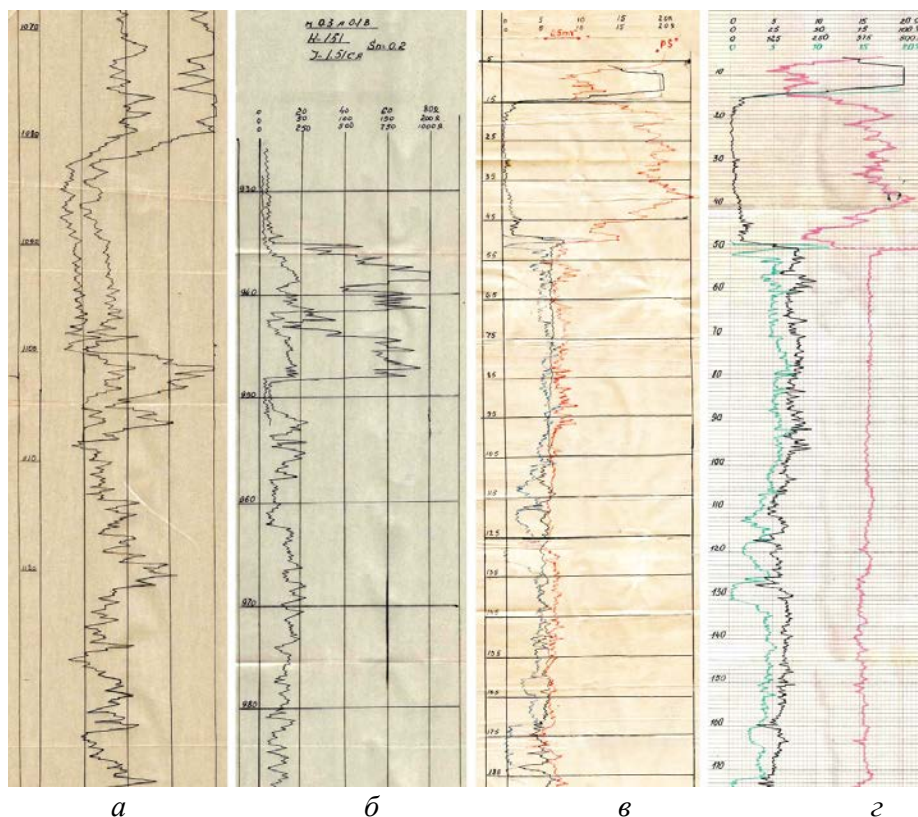 1070
1080
1090
1100
110
а
м 0.3 А 0.1 В
Sm-0.2
0 20 40 60 80Ω
0 50 100 150 200Ω
0 250 500 750 1000Ω
930
940
950
960
970
980
б
0 5 15 20Ω
0 5 10 15 20Ω
"PS"
5
15
25
35
45
55
65
75
85
95
105
115
125
135
145
155
165
175
в
0 5 10 15 20Ω
0 25
0 125 250 375
0 5 10 15 20Ω
10
20
30
40
50
60
70
80
90
100
110
120
130
140
150
160
170
г